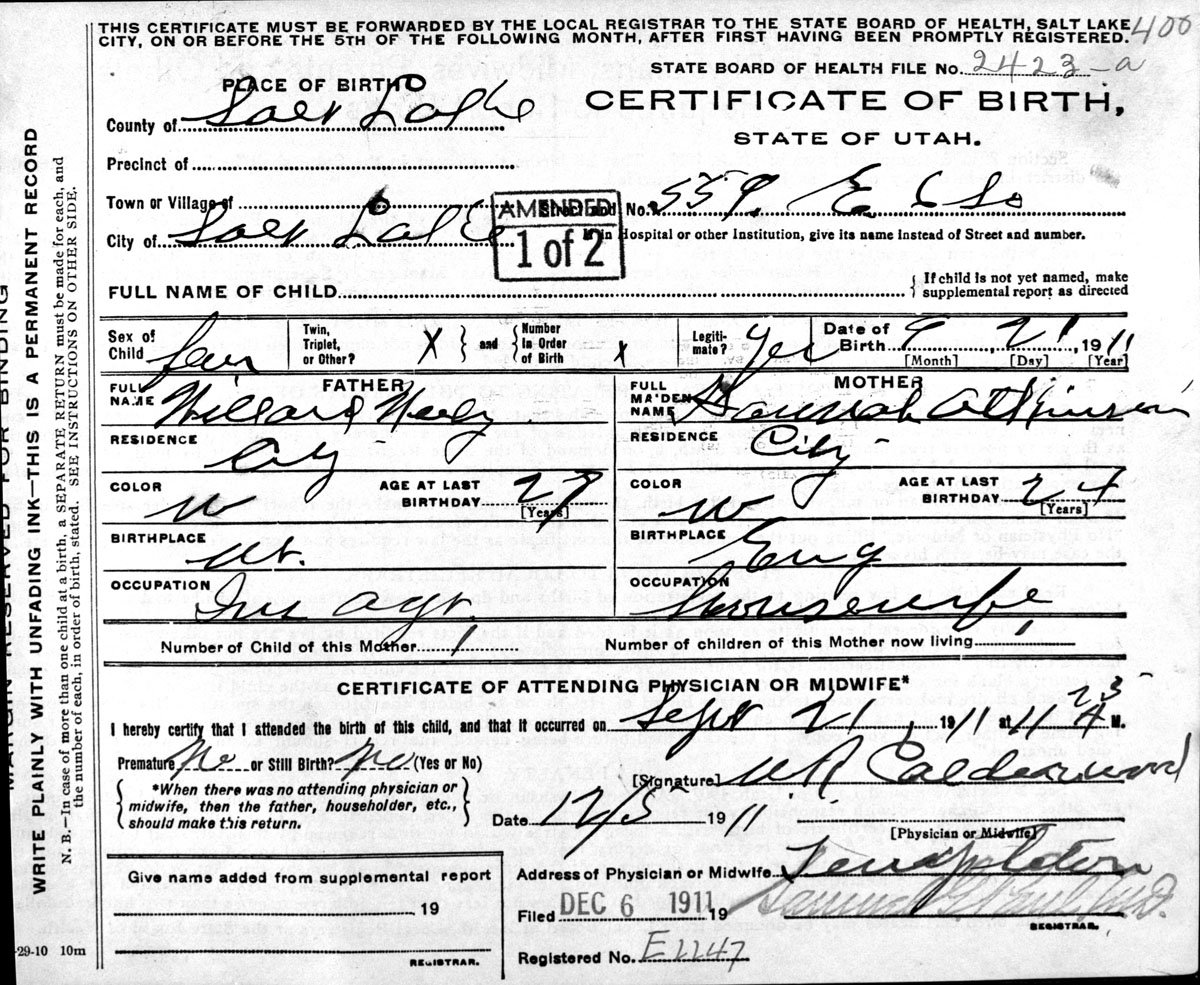 THIS CERTIFICATE MUST BE FORWARDED BY THE LOCAL REGISTRAR TO THE STATE BOARD OF HEALTH, SALT LAKE
CITY, ON OR BEFORE THE 5TH OF THE FOLLOWING MONTH, AFTER FIRST HAVING BEEN PROMPTLY REGISTERED.
400
STATE BOARD OF HEALTH FILE No. 2423-a
PLACE OF BIRTH
CERTIFICATE OF BIRTH,
STATE OF UTAH.
County of Salt Lake
Precinct of
Town or Village of
AMENDED
1 of 2
No. 559. E
City of Salt Lake
in Hospital or other Institution, give its name instead of Street and number.
FULL NAME OF CHILD
{ If child is not yet named, make
supplemental report as directed
Sex of Child Fem
Twin, Triplet, or Other? X
and
Number In Order of Birth x
Legitimate? Yes
Date of Birth 9 21 1911
[Month] [Day] [Year]
FATHER
FULL NAME Willard
RESIDENCE City
COLOR W
AGE AT LAST BIRTHDAY 27
[Years]
BIRTHPLACE Ut.
OCCUPATION Ins Agt
MOTHER
FULL MAIDEN NAME Hannah Atkinson
RESIDENCE City
COLOR W
AGE AT LAST BIRTHDAY 24
[Years]
BIRTHPLACE Eng
OCCUPATION Housewife
Number of Child of this Mother 1
Number of children of this Mother now living 1
CERTIFICATE OF ATTENDING PHYSICIAN OR MIDWIFE*
I hereby certify that I attended the birth of this child, and that it occurred on Sept 21, 1911 at 11 23 A M.
Premature No or Still Birth? No (Yes or No)
[Signature] W R Calderwood
*When there was no attending physician or
midwife, then the father, householder, etc.,
should make this return.
Date 12/5 1911
[Physician or Midwife]
Give name added from supplemental report
19
REGISTRAR.
Address of Physician or Midwife Templeton
Filed DEC 6 1911 19
REGISTRAR.
Registered No. E1147
-29-10 10m
MARGIN RESERVED FOR BINDING
WRITE PLAINLY WITH UNFADING INK—THIS IS A PERMANENT RECORD
N. B.—In case of more than one child at a birth, a SEPARATE RETURN must be made for each, and
the number of each, in order of birth, stated. SEE INSTRUCTIONS ON OTHER SIDE.